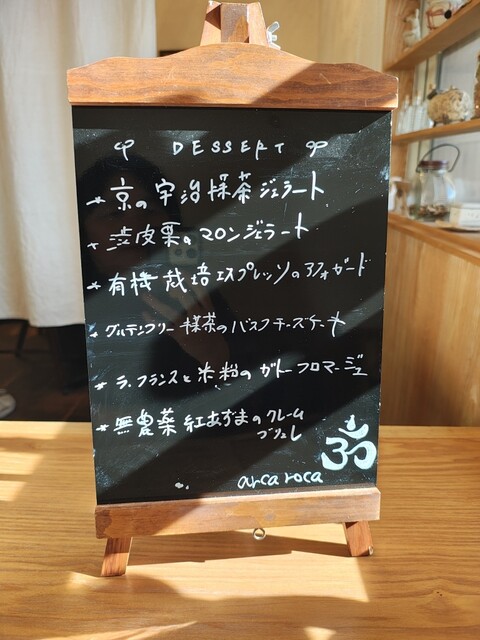 DESSERT
* 京の宇治抹茶ジェラート
* 渋皮栗のマロンジェラート
* 有機栽培エスプレッソのアフォガード
* グルテンフリー 抹茶のバスクチーズケーキ
* ラ・フランスと米粉のガトーフロマージュ
* 無農薬紅あずまのクレーム
ブリュレ
ॐ
arca roca